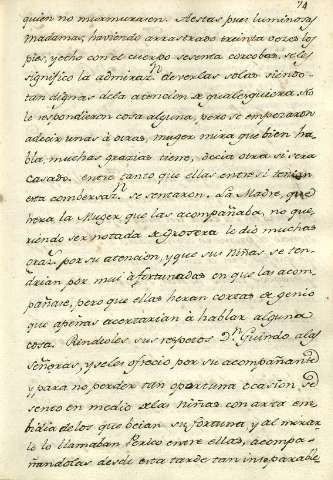 74
quien no murmurasen. A estas pues luminosas
Madamas, haviendo arrastrado treinta vezes los
pies, y echo con el cuerpo sesenta corcobas, seles
significo la admiraz.n deverlas solas siendo
tan dignas dela atencion de qualesquiera. No
le respondieron cosa alguna, pero se empezaron
adecir unas à otras, muger mira que bien ha
bla, muchas gracias tiene, decia otra si sera
casado. entre tanto que ellas entre si tenian
esta combersaz.n se sentaron. La Madre, que
hera la Muger que las acompañada, no que,
riendo ser notada de grosera le dió muchas
graz.s por su atencion, y que sus Niñas se ten
drian por mui afortunadas en que las acom
pañase, pero que ellas heran cortas de genio
que apenas acertarian à hablar alguna
cosa. Rindioles sus respetos D.n Guindo alas
señoras, y seles ofrecio por su acompañante
y para no perder tan oportuna ocasion se
sento en medio delas Niñas con arta em
bidia delos que veian su fortuna, y al
le lo llamaban Perico entre ellas, acompa
ñandolas desde esta tarde tan inseparable